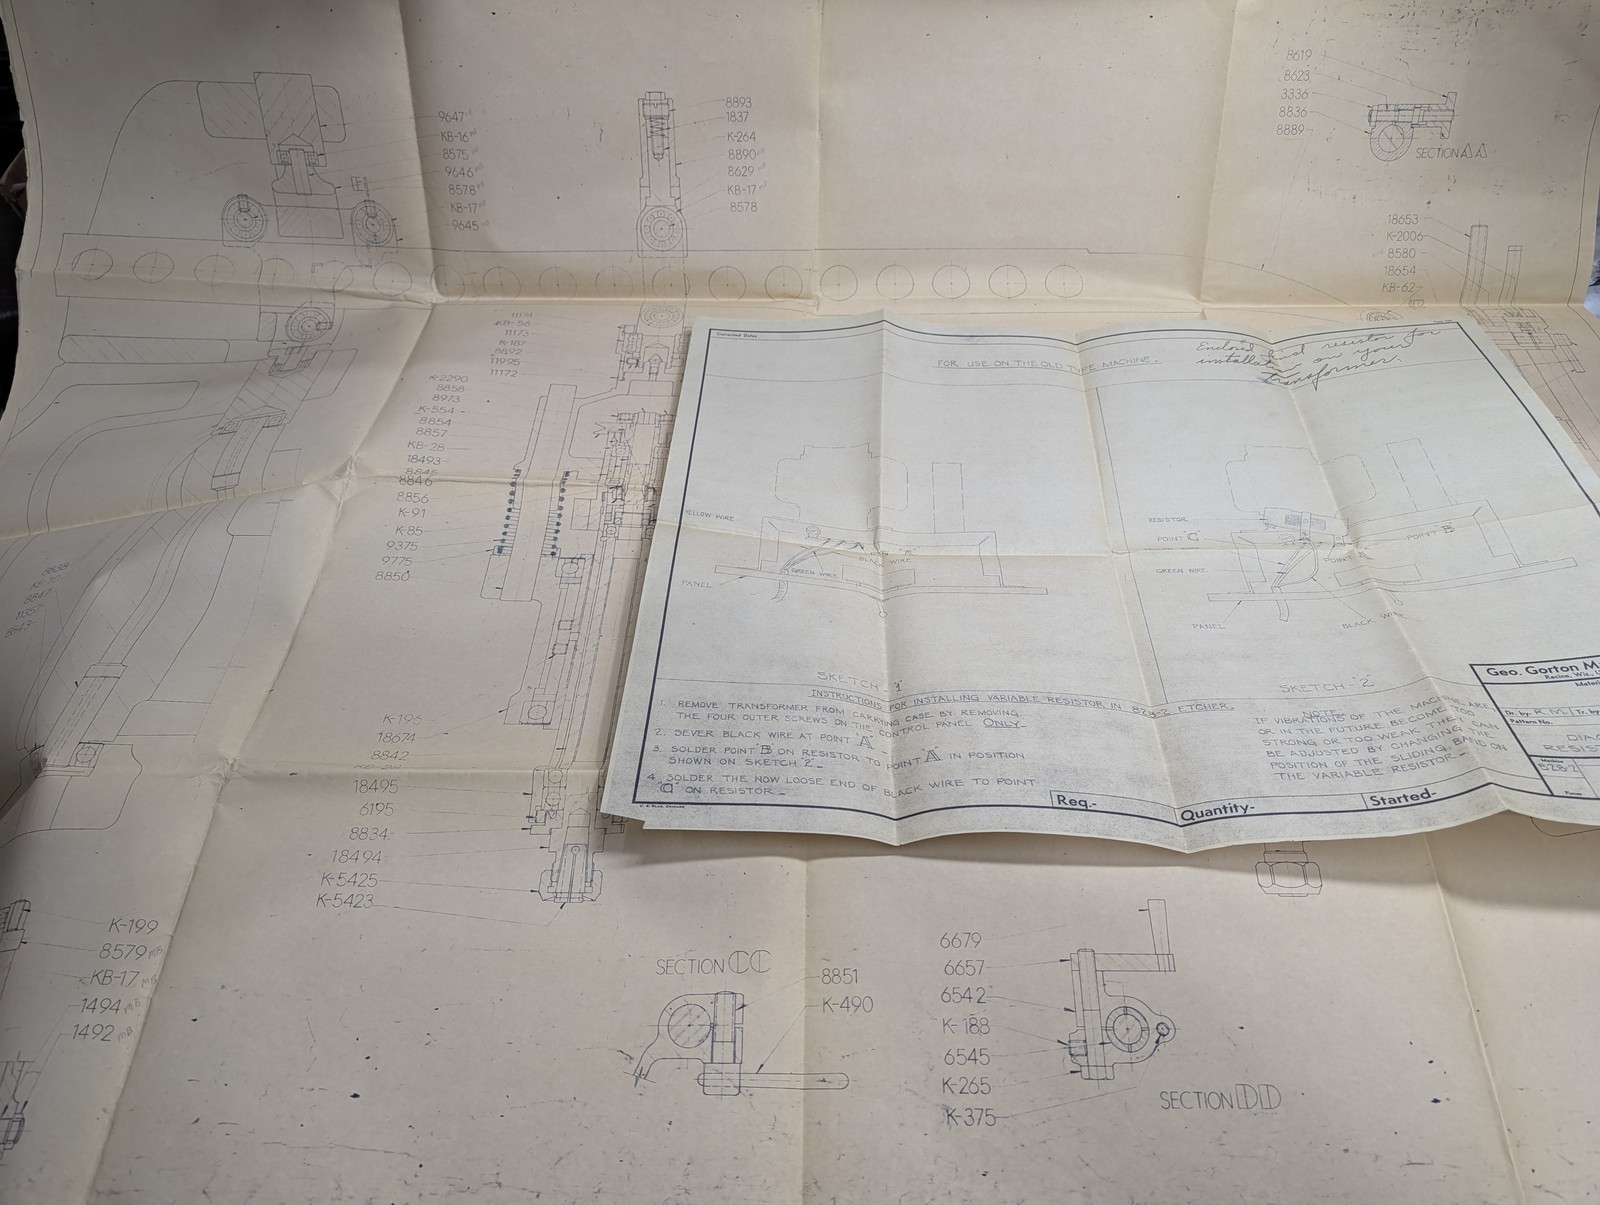 9647
KB-16
8575
9646
8578
KB-17
9645
8893
1837
K-264
8890
8629
KB-17
8578
8619
8623
3336
8836
8889
SECTION AA
18653
K-2006
8580
18654
KB-62
11174
KB-56
11173
K-187
8892
11995
11172
K-2290
8858
8973
K-554
8854
8857
KB-28
18493
8845
8846
8856
K-91
K-85
9375
9775
8850
8838
8847
11357
8843
K-196
18674
8842
18495
6195
8834
18494
K-5425
K-5423
K-199
8579 MB
KB-17 MB
1494 MB
1492 MB
SECTION CC
8851
K-490
6679
6657
6542
K-188
6545
K-265
K-375
SECTION DD
Corrected Dates
FOR USE ON THE OLD TYPE MACHINE.
Enclosed find resistor for
installation on your
transformer.
YELLOW WIRE
BLACK WIRE
GREEN WIRE
PANEL
SKETCH-"1"
RESISTOR
POINT "C"
POINT "B"
POINT "A"
GREEN WIRE
PANEL
BLACK WIRE
SKETCH-"2"
INSTRUCTIONS FOR INSTALLING VARIABLE RESISTOR IN 828-2 ETCHER.
1. REMOVE TRANSFORMER FROM CARRYING CASE BY REMOVING
THE FOUR OUTER SCREWS ON THE CONTROL PANEL ONLY-
2. SEVER BLACK WIRE AT POINT "A"
3. SOLDER POINT "B" ON RESISTOR TO POINT "A" IN POSITION
SHOWN ON SKETCH "2"-
4. SOLDER THE NOW LOOSE END OF BLACK WIRE TO POINT
"C" ON RESISTOR-
NOTE
IF VIBRATIONS OF THE MACHINE ARE
OR IN THE FUTURE BECOME TOO
STRONG OR TOO WEAK, THEY CAN
BE ADJUSTED BY CHANGING THE
POSITION OF THE SLIDING BAND ON
THE VARIABLE RESISTOR-
Geo. Gorton M
Racine, Wis., U
Dr. by R.M. Tr. by
Pattern No.
DIAG
RESIS
Machine
828-2
Req.-
Quantity-
Started-